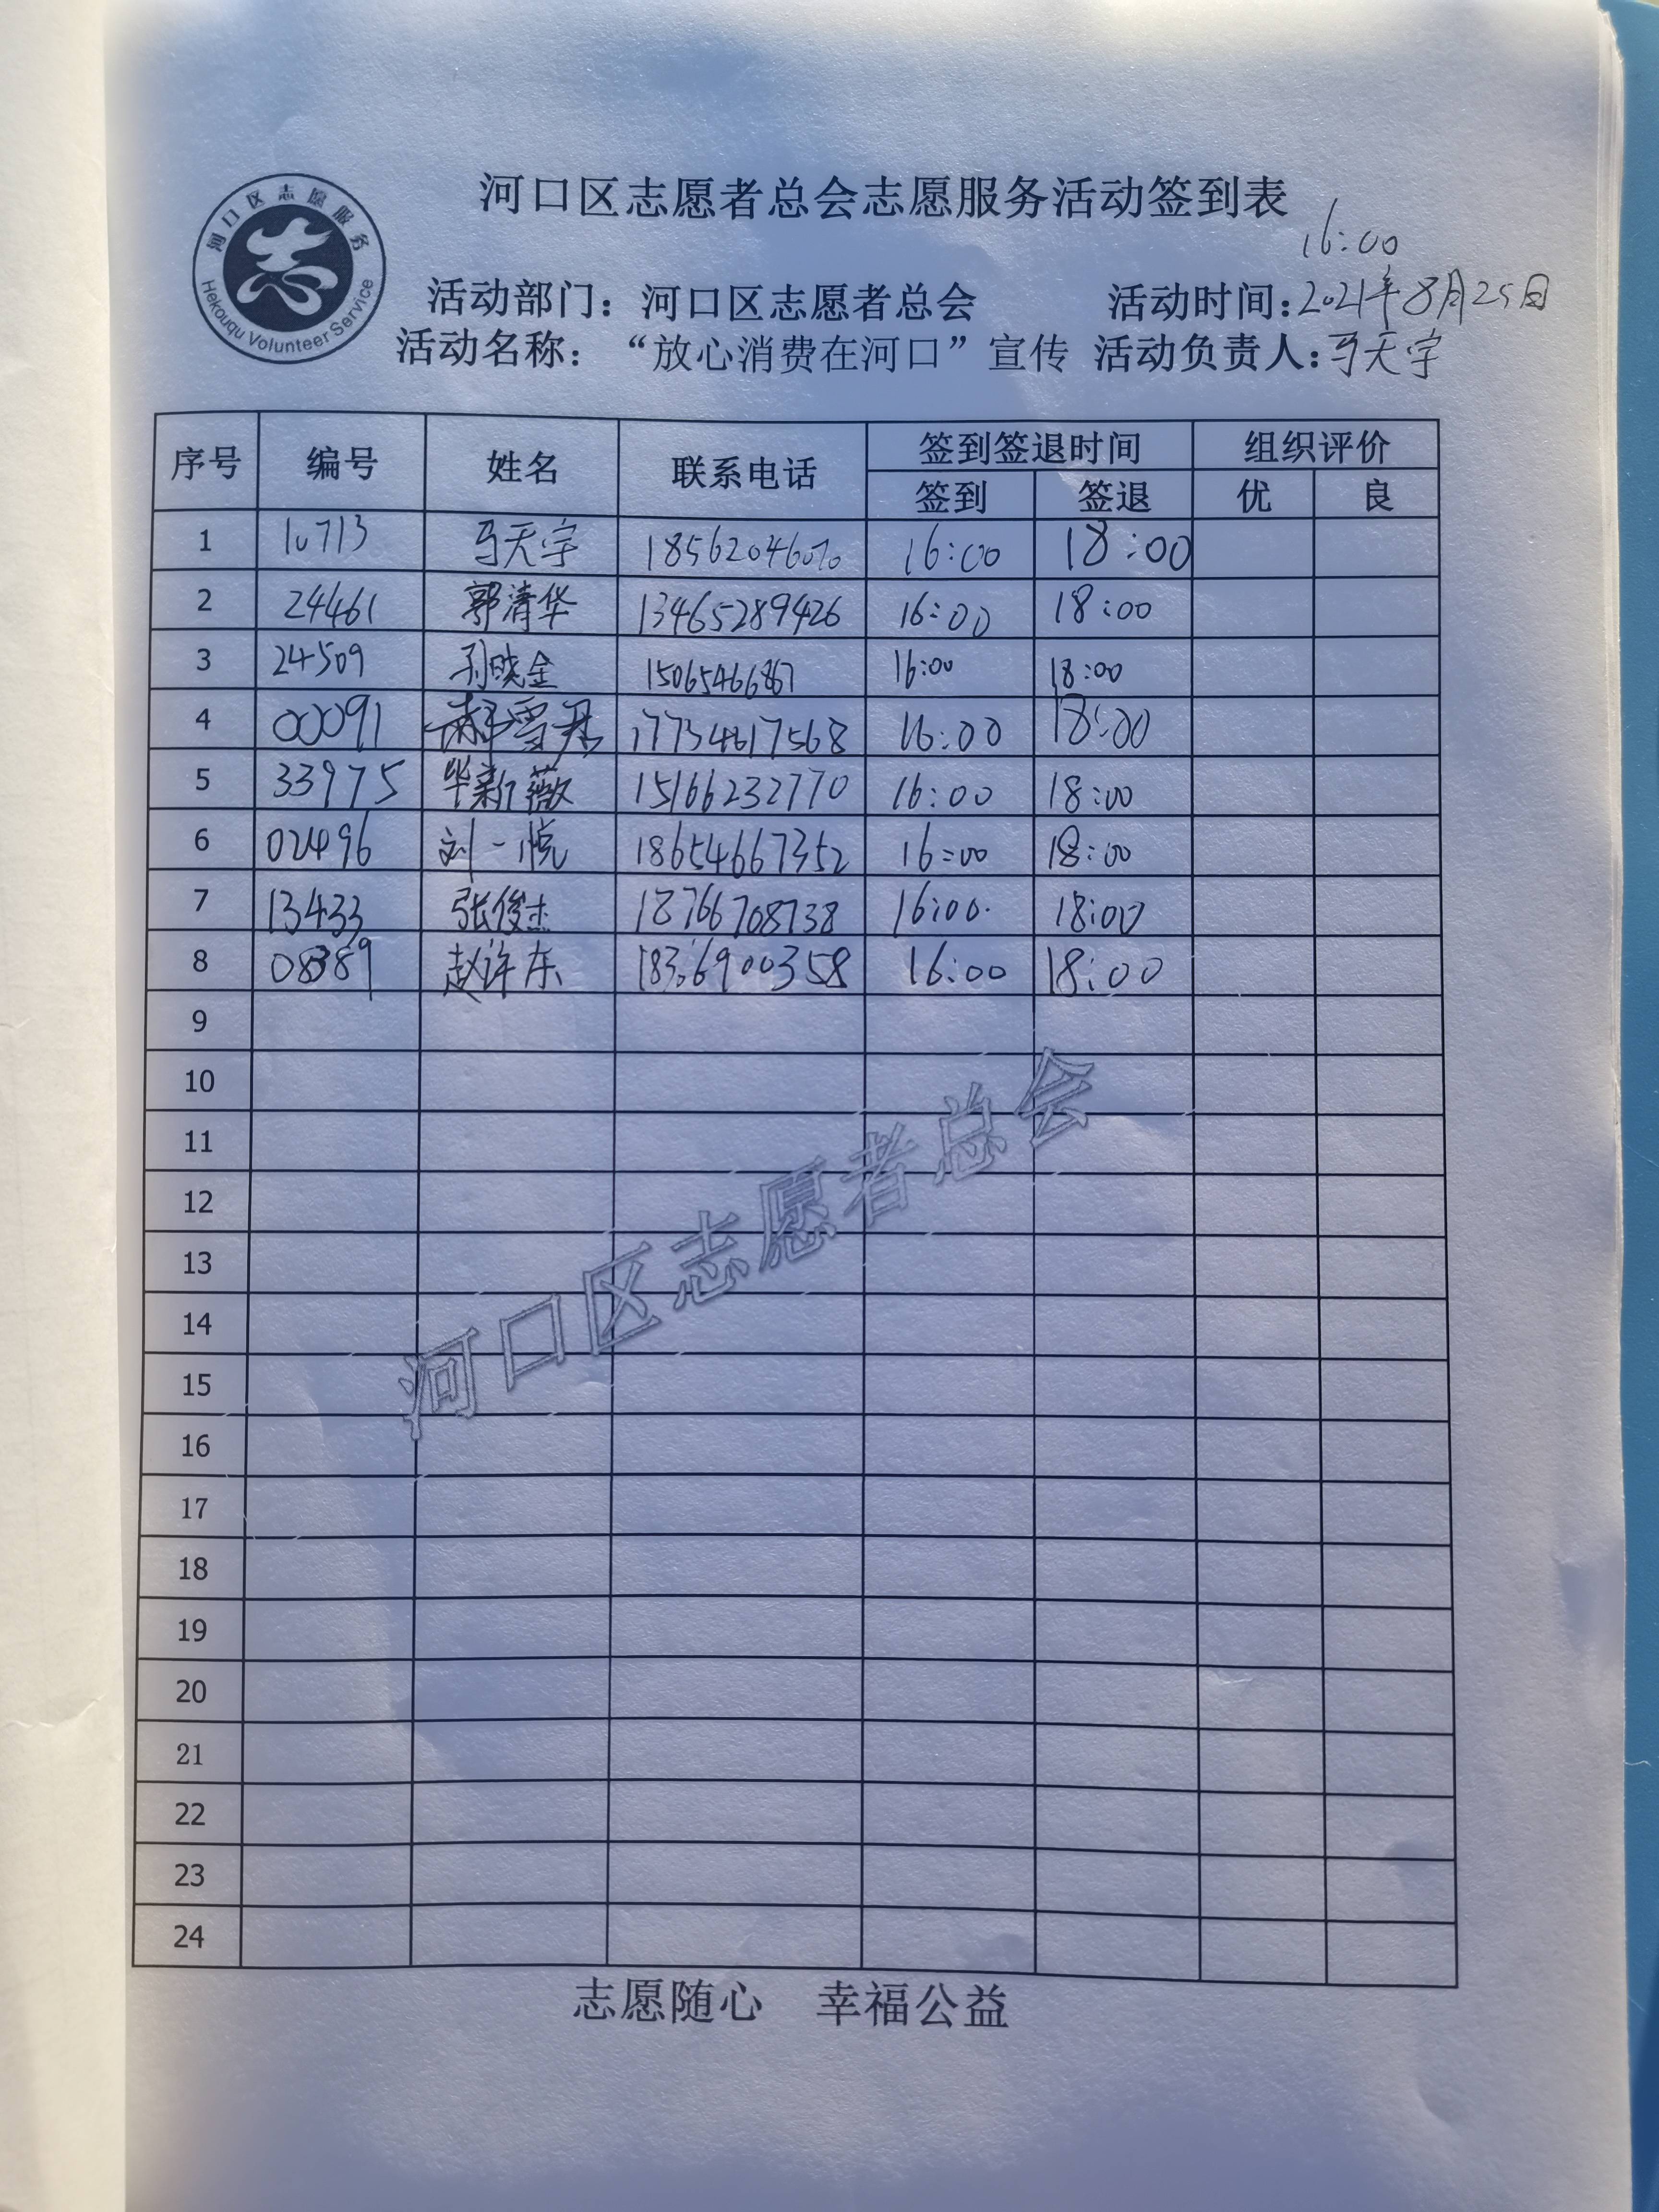 河口区志愿者总会志愿服务活动签到表
16:00
河口区志愿服务
Hekouqu Volunteer Service
活动部门：河口区志愿者总会 活动时间：2021年8月25日
活动名称：“放心消费在河口”宣传 活动负责人：马天宇
序号 编号 姓名 联系电话 签到签退时间 组织评价
签到 签退 优 良
1 10713 马天宇 16:00 18:00
2 24461 郭清华 13465289426 16:00 18:00
3 24509 孙晓金 15065466867 16:00 18:00
4 00091 郝雪君 17734617568 16:00 18:00
5 33975 毕新薇 15166232770 16:00 18:00
6 02496 刘一悦 18654667352 16:00 18:00
7 13433 张俊杰 18766708738 16:00 18:00
8 08389 赵许东 16:00 18:00
9
10
11
12
13
14
15
16
17
18
19
20
21
22
23
24
河口区志愿者总会
志愿随心 幸福公益